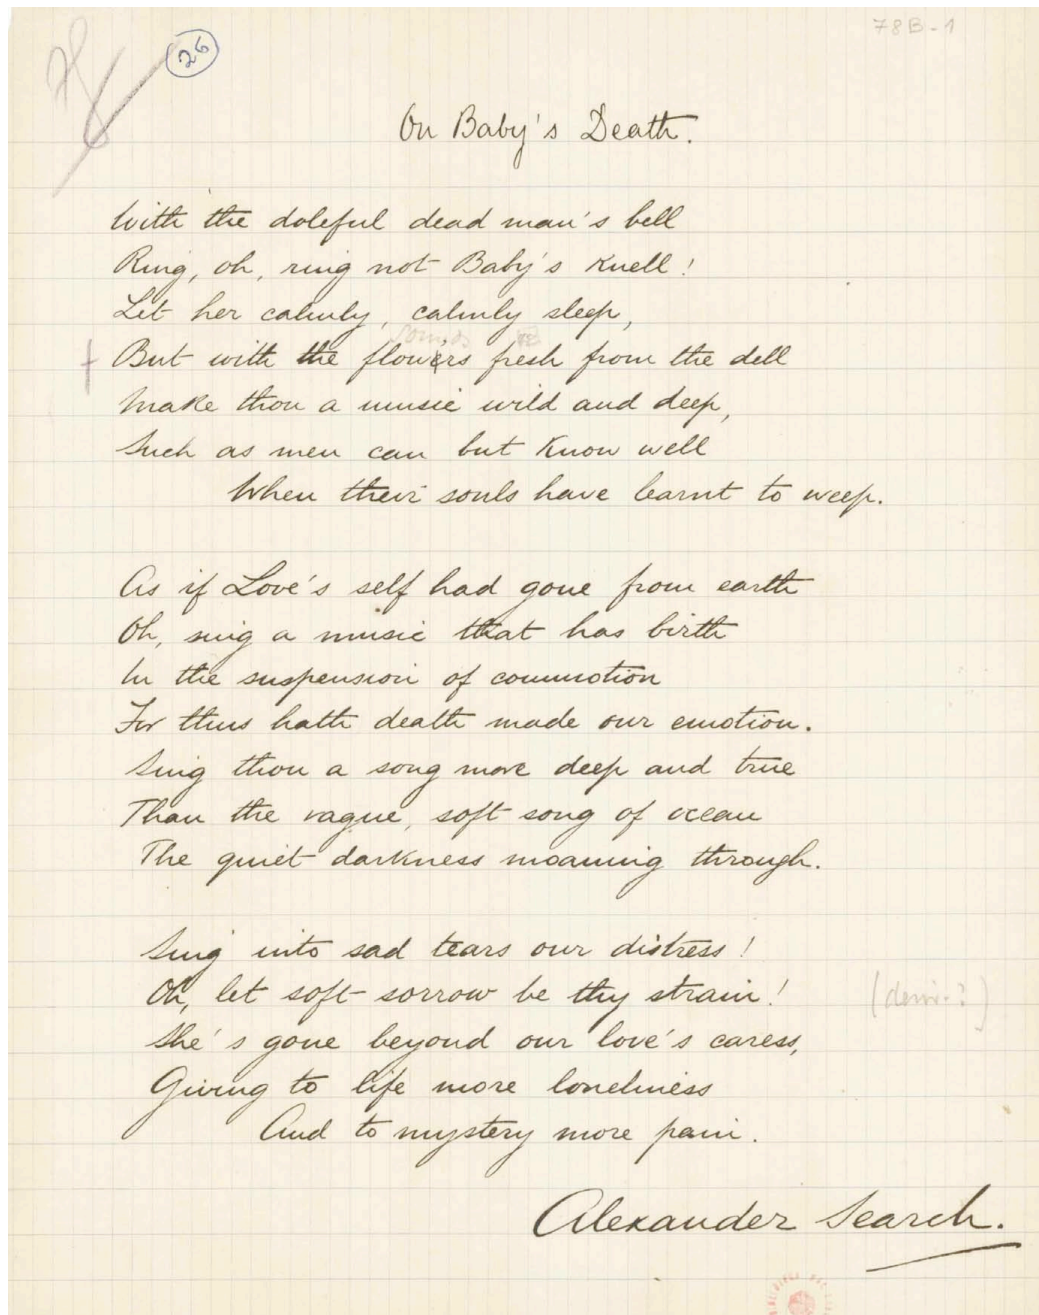 78
26
78B-1
On Baby's Death.
With the doleful dead man's bell
Ring, oh, ring not Baby's knell!
Let her calmly, calmly sleep,
sounds
But with the flowers fresh from the dell
Make thou a music wild and deep,
Such as men can but know well
When their souls have learnt to weep.
As if Love's self had gone from earth
Oh, sing a music that has birth
In the suspension of commotion
For thus hath death made our emotion.
Sing thou a song more deep and true
Than the vague, soft song of ocean
The quiet darkness moaning through.
Sing into sad tears our distress!
Oh, let soft sorrow be thy strain!
She's gone beyond our love's caress,
Giving to life more loneliness
And to mystery more pain.
Alexander Search.